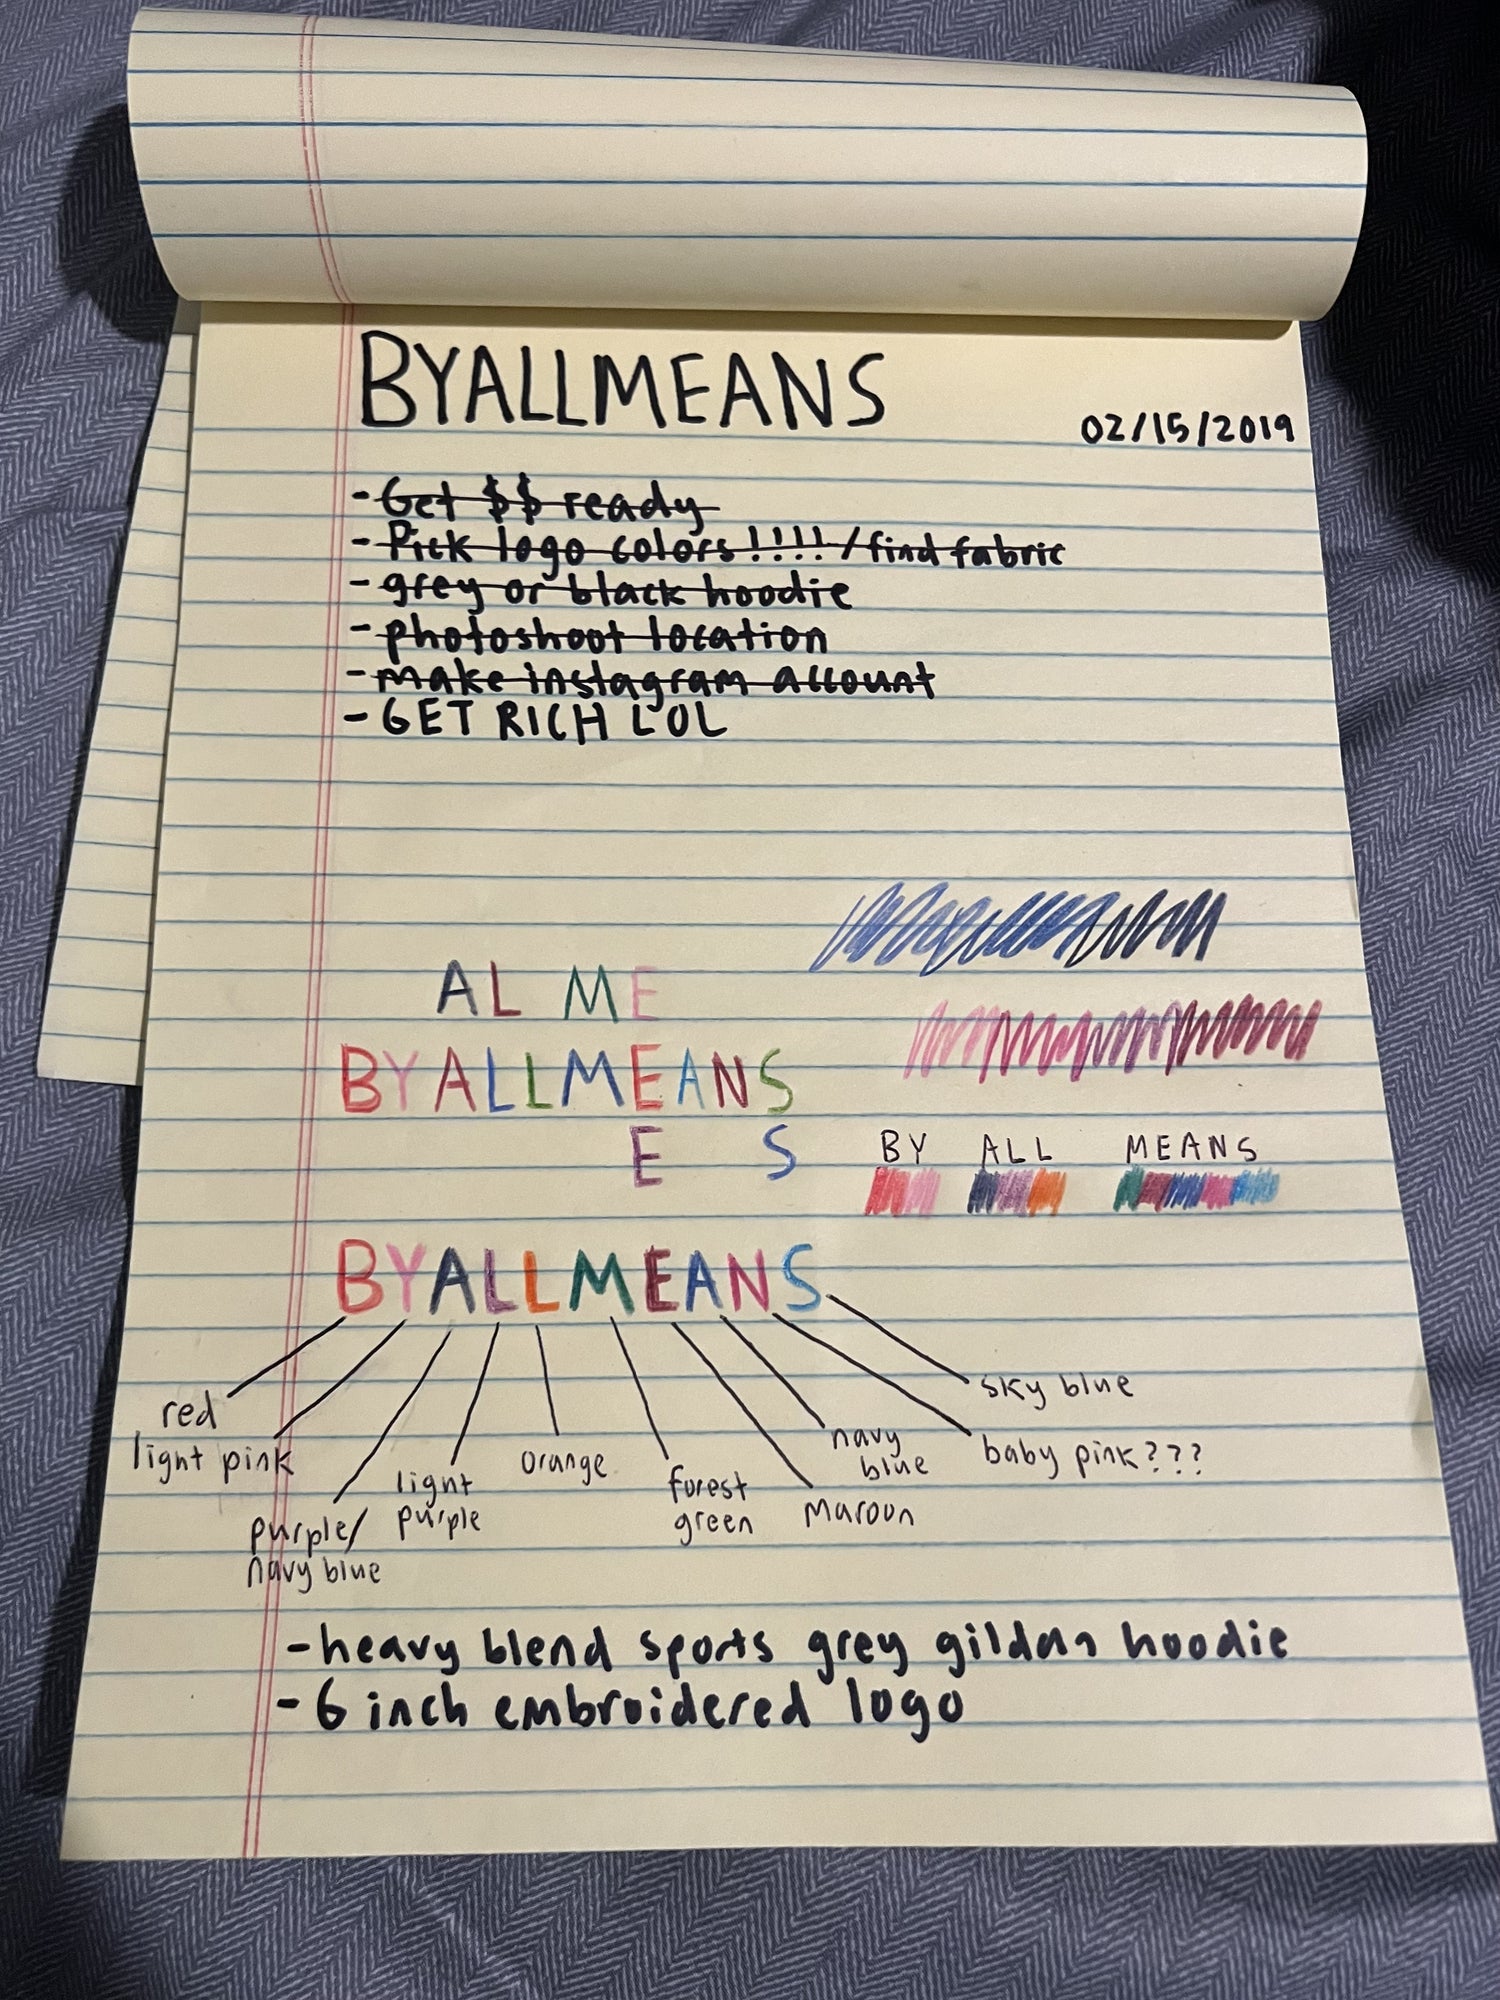 BYALLMEANS
02/15/2019
- Get $$ ready
- Pick logo colors!!!!/find fabric
- grey or black hoodie
- photoshoot location
- make instagram account
- GET RICH LOL
AL ME
BYALLMEANS
E S
BY ALL MEANS
BYALLMEANS
red
light pink
purple/
navy blue
light
purple
orange
forest
green
maroon
navy
blue
baby pink???
sky blue
- heavy blend sports grey gildan hoodie
- 6 inch embroidered logo